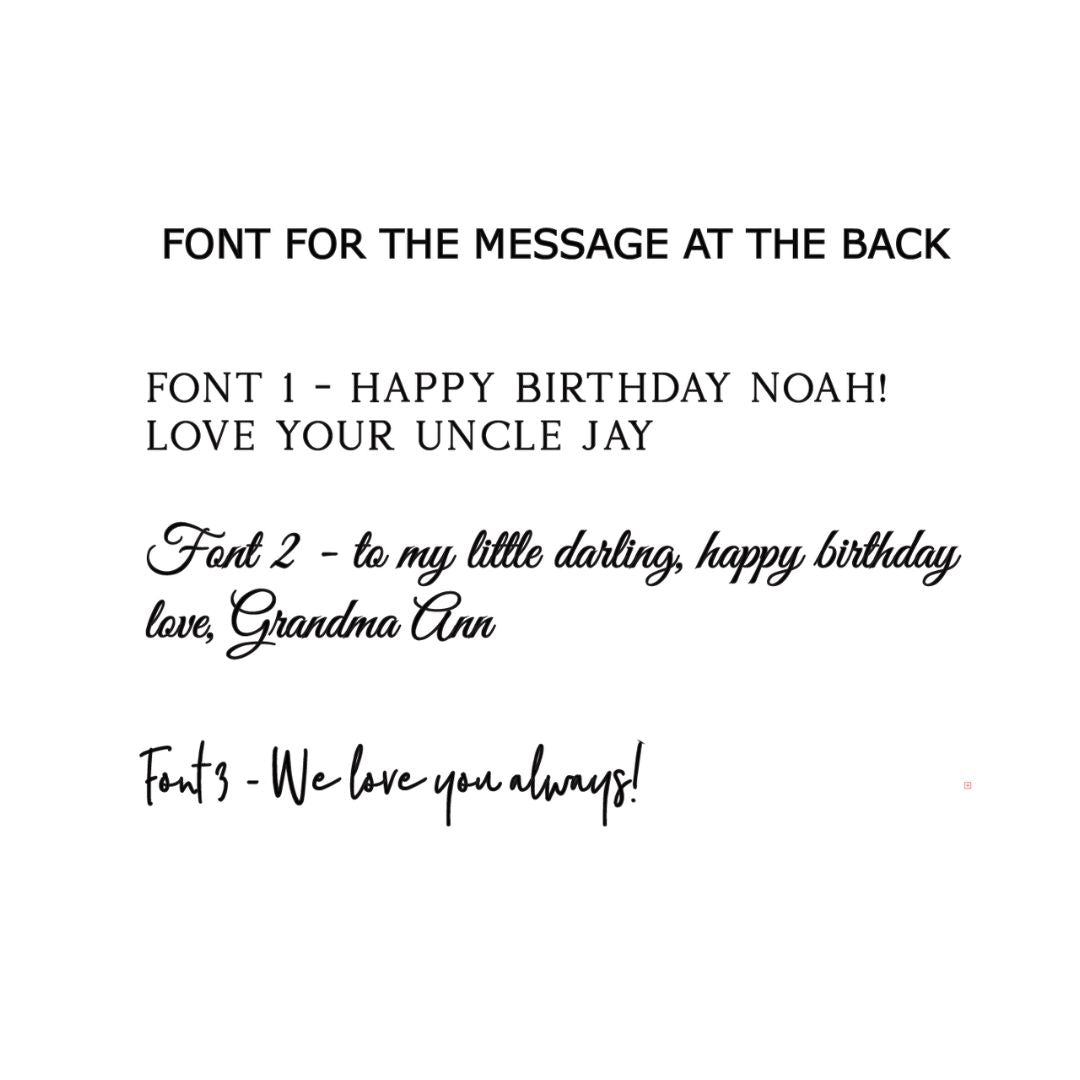 FONT FOR THE MESSAGE AT THE BACK
FONT 1 - HAPPY BIRTHDAY NOAH!
LOVE YOUR UNCLE JAY
Font 2 - to my little darling, happy birthday
love, Grandma Ann
Font 3 - We love you always!